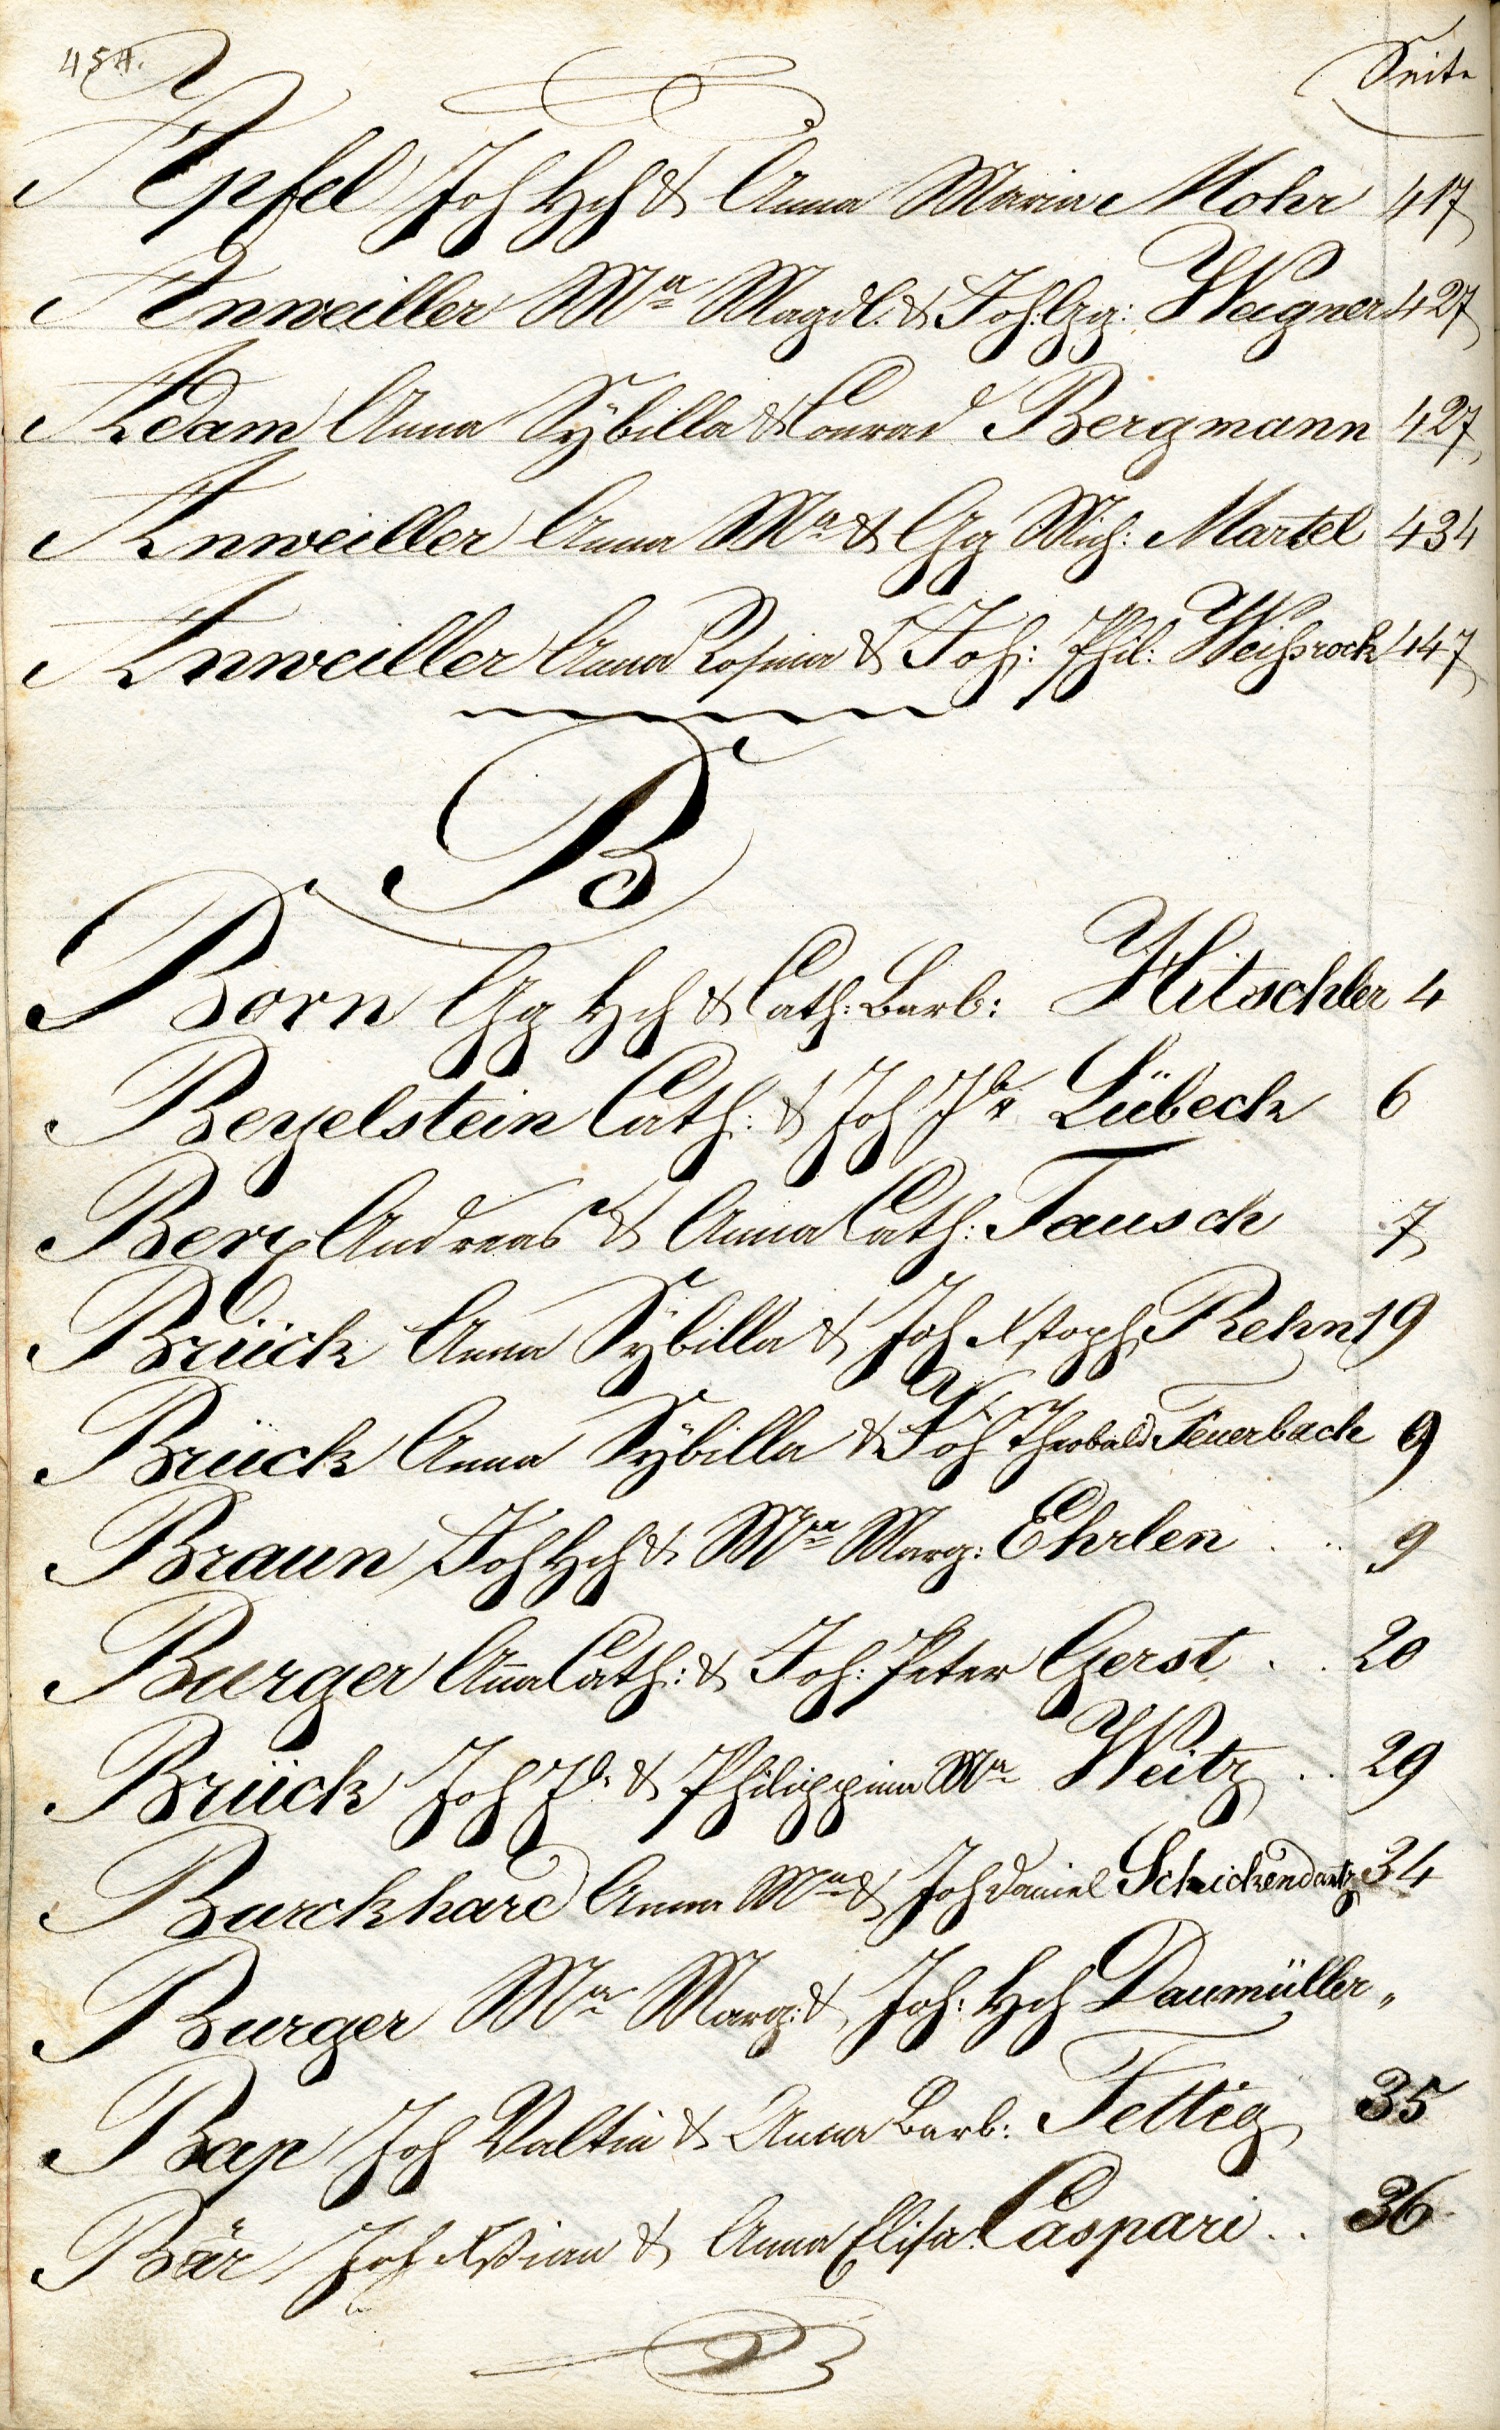 454.
Seite
Apfel Joh Hch & Anna Maria Mohr 417
Anweiller Ma Magdl. & Joh: Gg: Wegner 427
Adam Anna Sÿbilla & Conrad Bergmann 427
Anweiller Anna Ma & Gg Mich: Martel 434
Anweiller Anna Rosina & Joh: Phil: Weihsrock 447
B
Born Gg Hch & Cath: Barb: Hitschler 4
Beyelstein Cath: & Joh Lübeck 6
Berg Andreas & Anna Cath: Tausch 7
Brück Anna Sÿbilla & Joh Xstoph Rehn 19
Brück Anna Sÿbilla & Joh Theobald Feuerbach 9
Braun Joh Hch & Ma Marg: Ehrlen . .. 9
Burger Anna Cath: & Joh: Peter Gerst . . 20
Brück Joh & Philippina Ma Weitz . .. 29
Burckhard Anna Ma & Joh Daniel Schickendantz 34
Burger Ma Marg: & Joh: Hch Daumüller "
Bap Joh Valtin & Anna Barb: Fettig 35
Bär Joh Xstian & Anna Elisa: Caspari . . 36